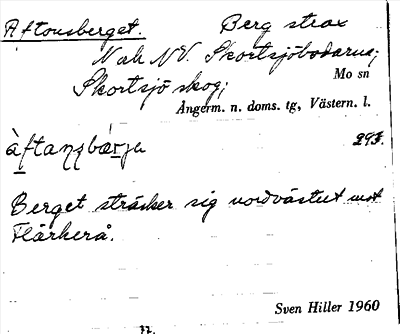 Aftonsberget. Berg strax
N ch NV. Skortsjöbodarna;
Skortsjö skog; Mo sn
Ångerm. n. doms. tg, Västern. l.
àftaɳʂbærjə 293.
Berget sträcker sig nordvästut mot
Flärkerå.
Sven Hiller 1960